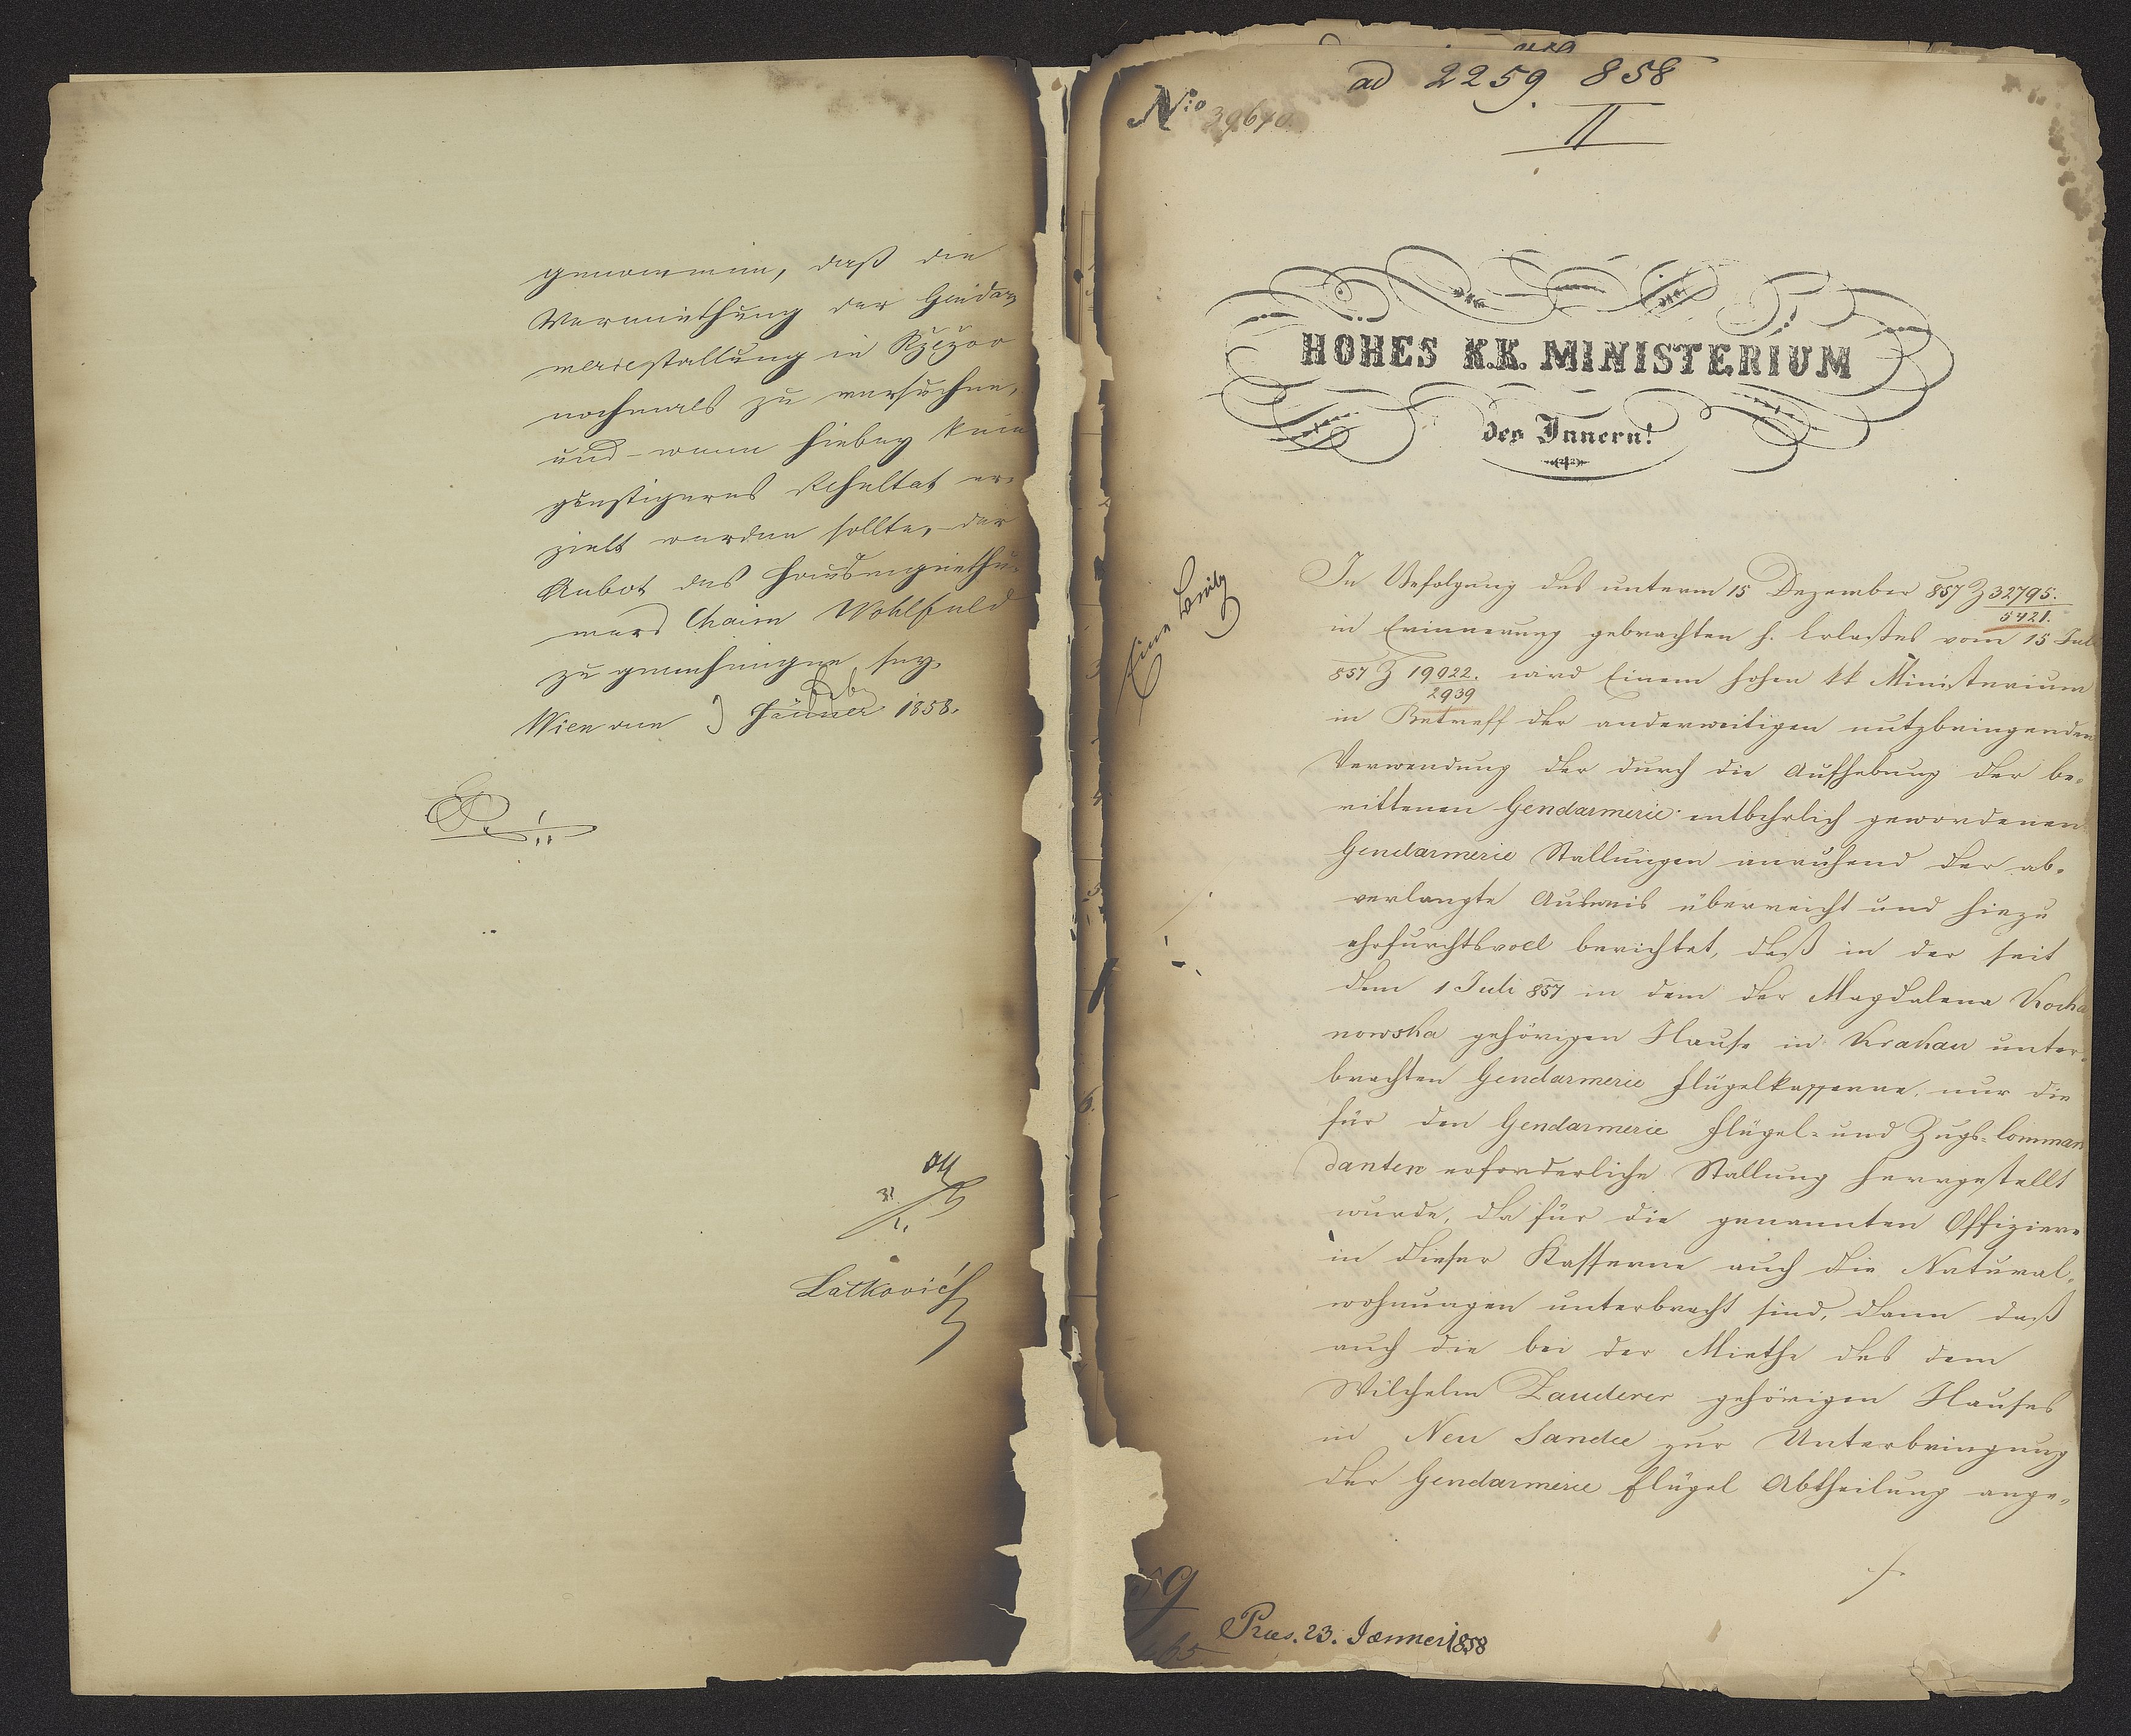 genommen, daß die
Vermiethung der Gendar
meriestallung in Rzezow
nochmals zu versuchen,
und – wenn hiebey kein
günstigeres Resultat er-
zielt werden sollte, – der
Anbot des Hauseigenthü-
mers Chaim Wohlfeld
zu genehmigen sey.
Wien am 3 Jänner 1858.
Feb
Latkovich
ad 2259 858
II
No 39640.
HOHES K.K. MINISTERIUM
des Innern!
Eine Beilg
In Befolgung des unterm 15 Dezember 857 Z 32795.
5421.
in Erinnerung gebrachten h. Erlaßes vom 15 Juli
857 Z 19022. wird Einem hohen kk Ministerium
2939
in Betreff der anderweitigen nutzbringenden
Verwendung der durch die Aufhebung der be-
rittenen Gendarmerie entbehrlich gewordenen
Gendarmerie Stallungen anruhend der ab-
verlangte Ausweis überreicht und hiezu
ehrfurchtsvoll berichtet, daß in der seit
dem 1 Juli 857 in dem der Magdalena Kocha
nowska gehörigen Hause in Krakau unter-
brachten Gendarmerie Flügelkasserne nur die
für den Gendarmerie Flügel- und Zugs-Comman
danten erforderliche Stallung hergestellt
wurde, da für die genannten Offiziere
in dieser Kasserne auch die Natural-
wohnungen unterbracht sind, dann daß
auch die bei der Miethe des dem
Wilhelm Zauderer gehörigen Hauses
in Neu Sandec zur Unterbringung
der Gendarmerie Flügel Abtheilung ange-
./.
Praes. 23. Jænner 1858